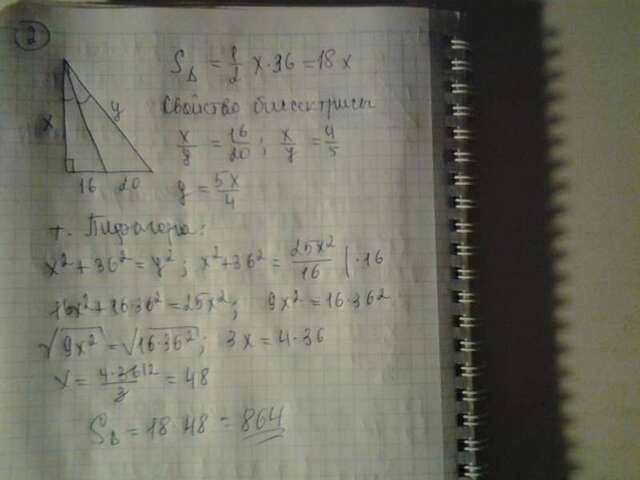 2
S△ = 1/2 x·36 = 18x
x
y
16 20
Свойство биссектрисы
x/y = 16/20 ; x/y = 4/5
y = 5x/4
т. Пифагора:
x² + 36² = y² ; x² + 36² = 25x²/16 | ·16
16x² + 16·36² = 25x² ; 9x² = 16·36²
√9x² = √16·36² ; 3x = 4·36
x = 4·36 12/3 = 48
S△ = 18·48 = 864